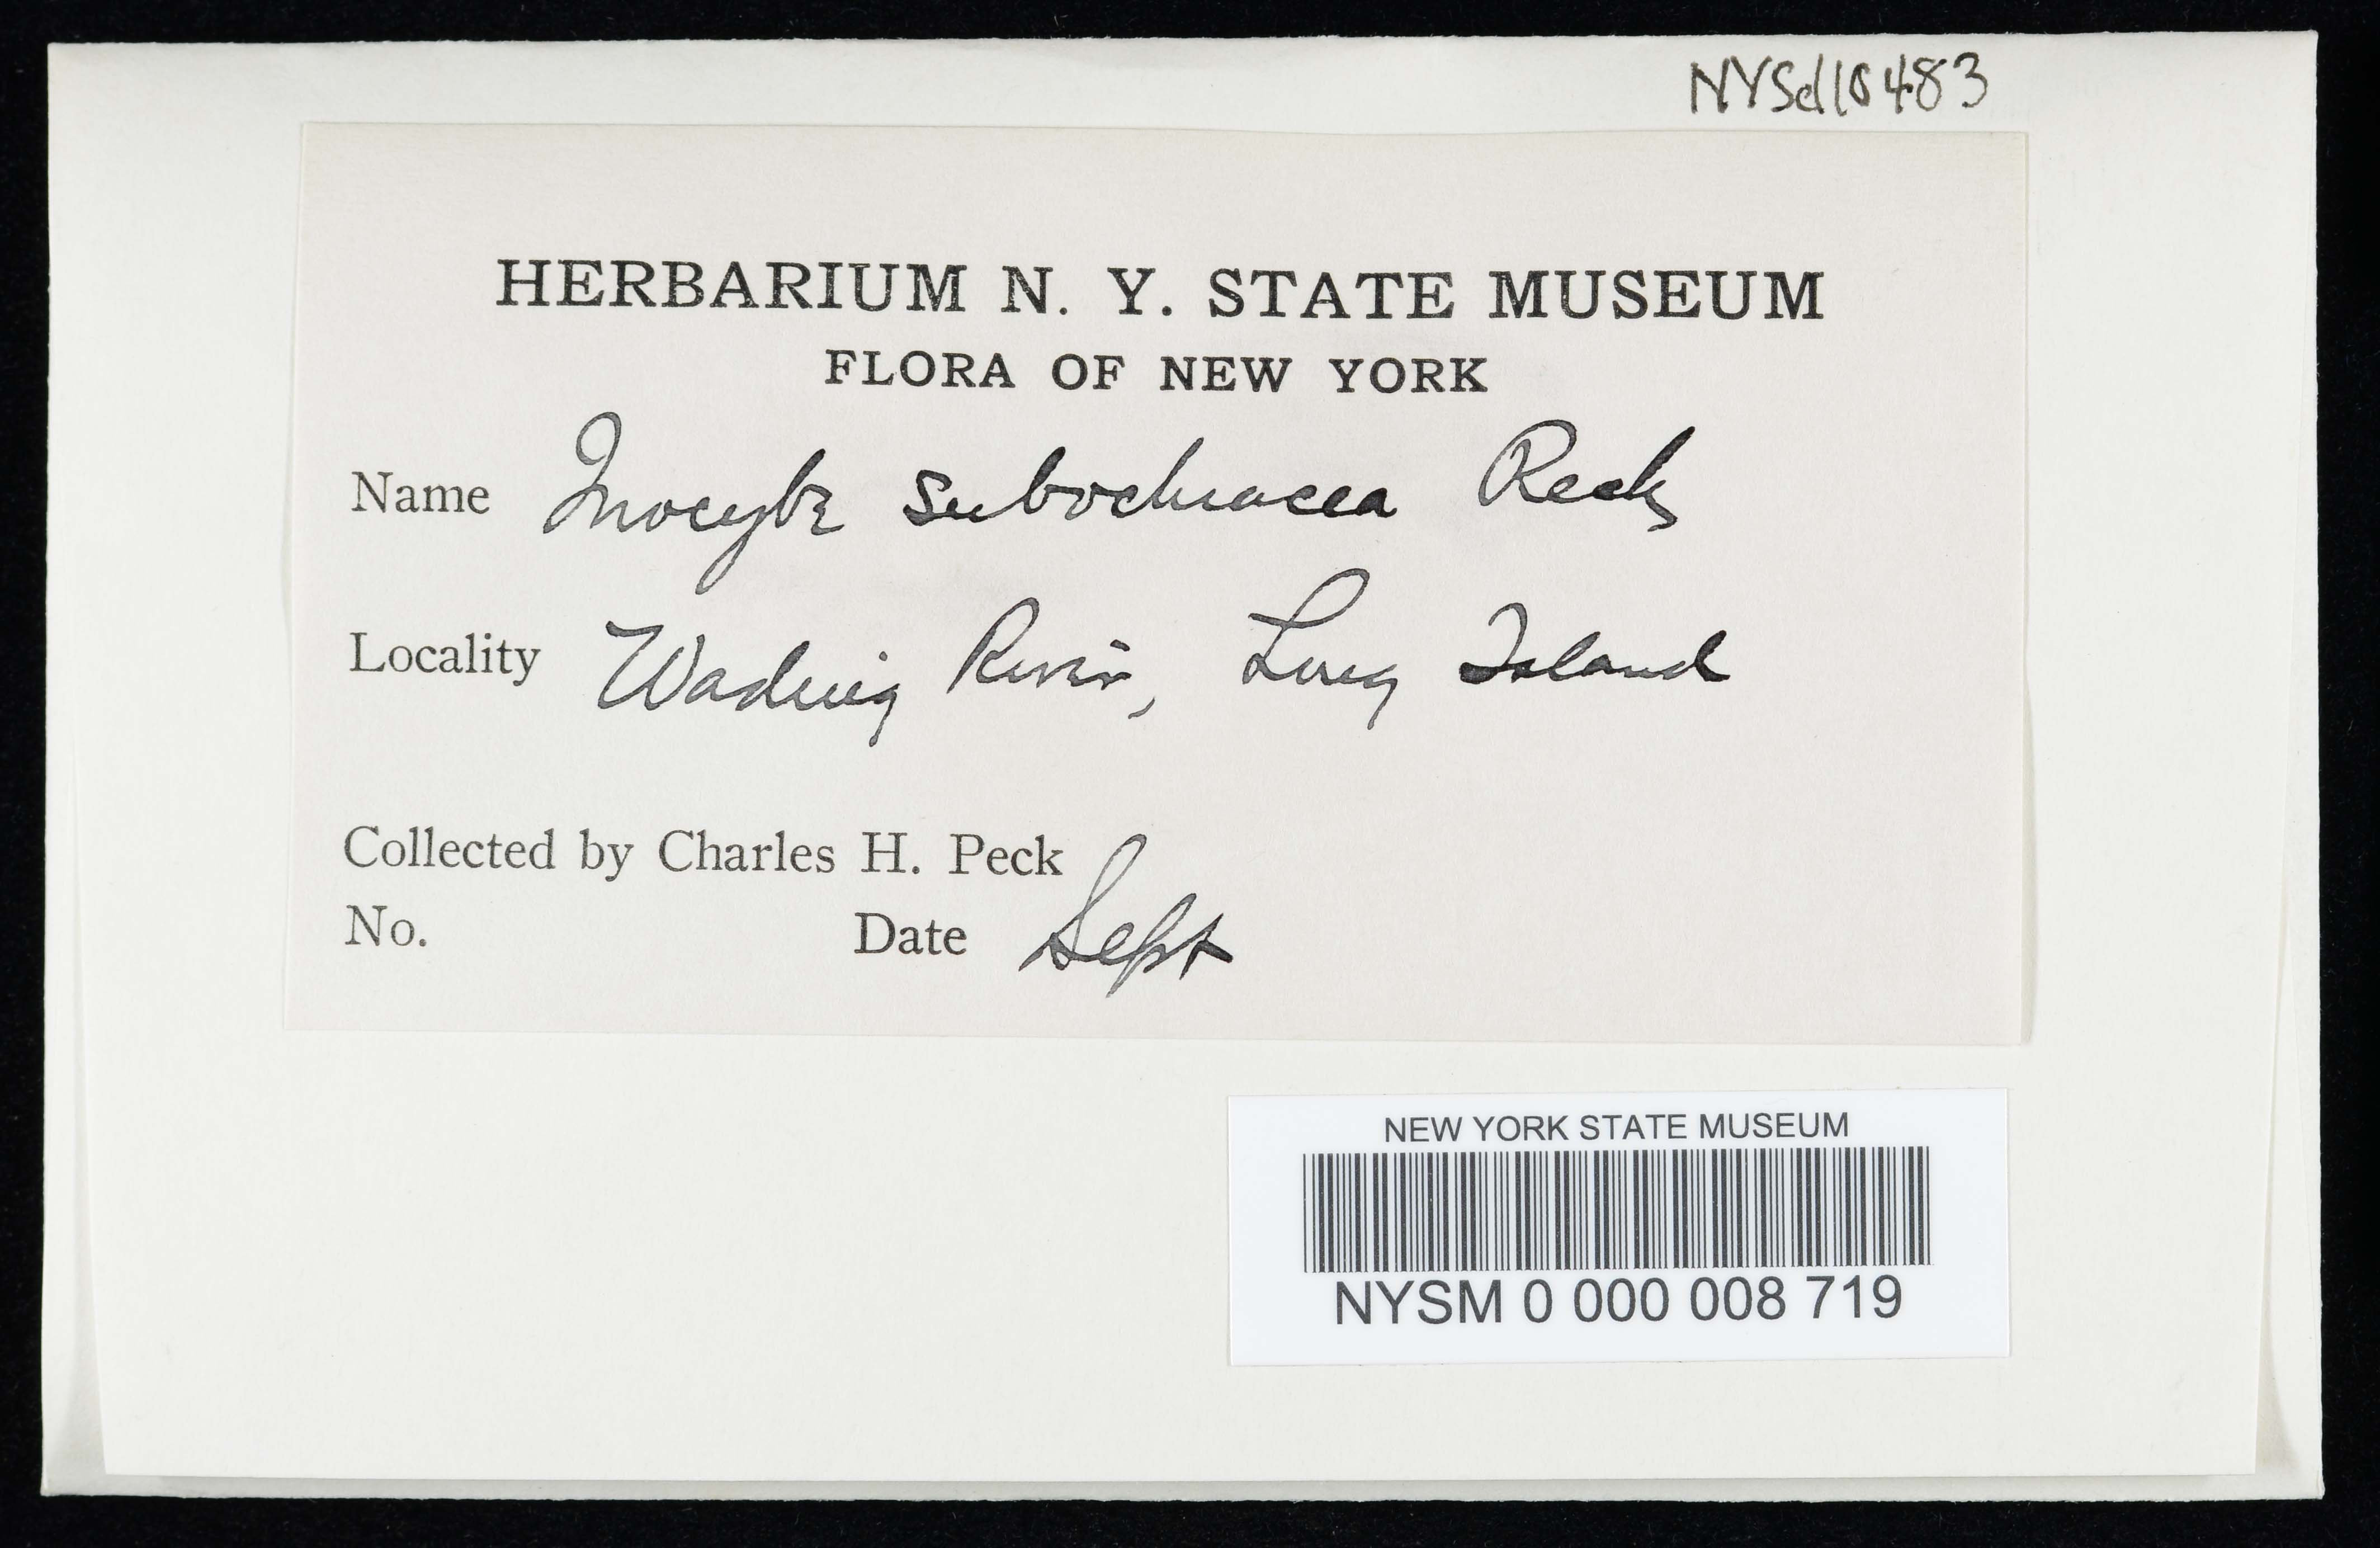 NYSd10483
HERBARIUM N. Y. STATE MUSEUM
FLORA OF NEW YORK
Name Inocybe subochracea Peck
Locality Wading River, Long Island
Collected by Charles H. Peck
No. Date Sept
NEW YORK STATE MUSEUM
NYSM 0 000 008 719